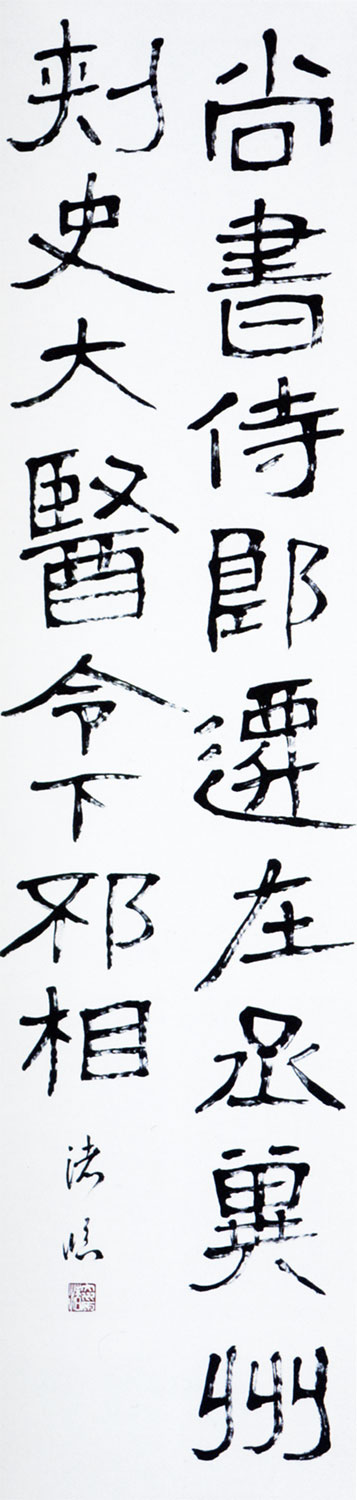 尚書侍郎遷左丞冀州
刾史大醫令下邳相
渚臨